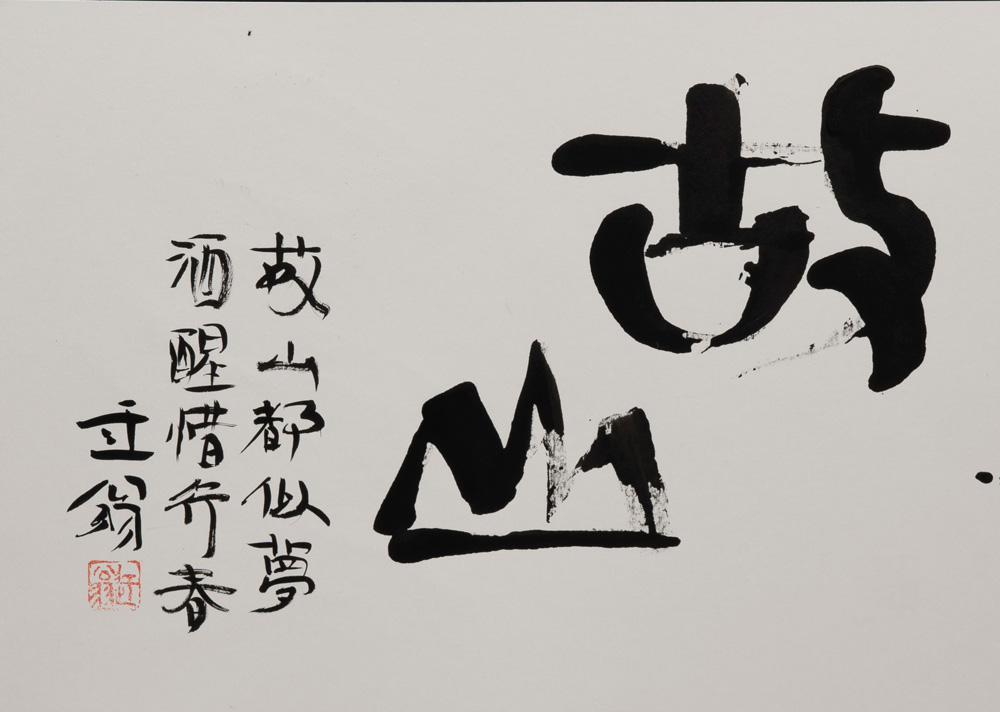 故山
故山都似夢
酒醒惜行春
翁